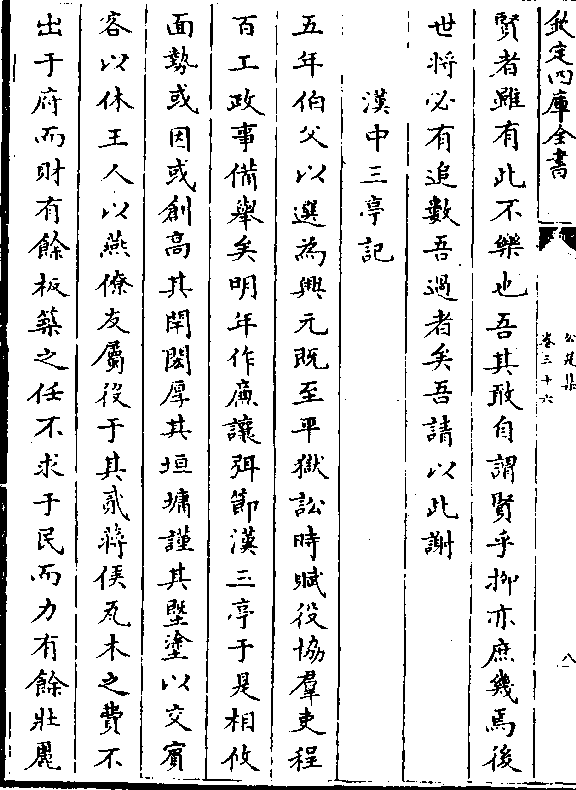 欽定四庫全書
公是集
卷三十六
八
賢者雖有此不樂也吾其敢自謂賢乎抑亦庶幾焉後
世將必有追數吾過者矣吾請以此謝
漢中三亭記
五年伯父以選為興元既至平獄訟時賦役協羣吏程
百工政事備舉矣明年作廉讓弭節漢三亭于是相攸
面勢或因或創高其閈閎厚其垣墉謹其塈塗以交賓
客以休王人以燕僚友屬役于其貳蔣侯瓦木之費不
出于府而財有餘板築之任不求于民而力有餘壯麗